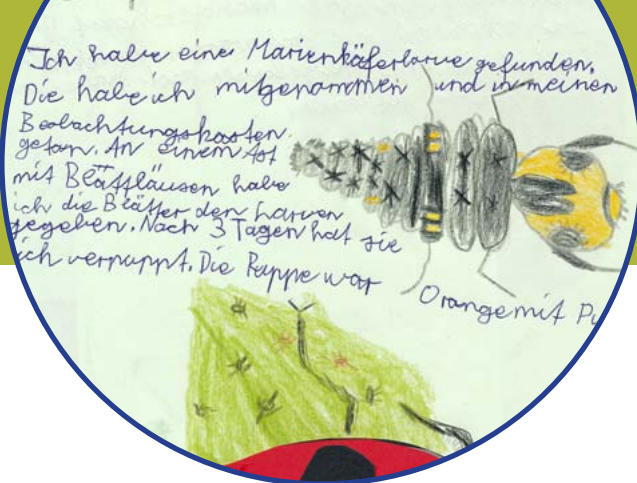 Ich habe eine Marienkäferlarve gefunden.
Die habe ich mitgenommen und in meinen
Beobachtungskasten
getan. An einem Ast
mit Blattläusen habe
ich die Blätter den Larven
gegeben. Nach 3 Tagen hat sie
ich verpuppt. Die Puppe war
Orange mit Pu